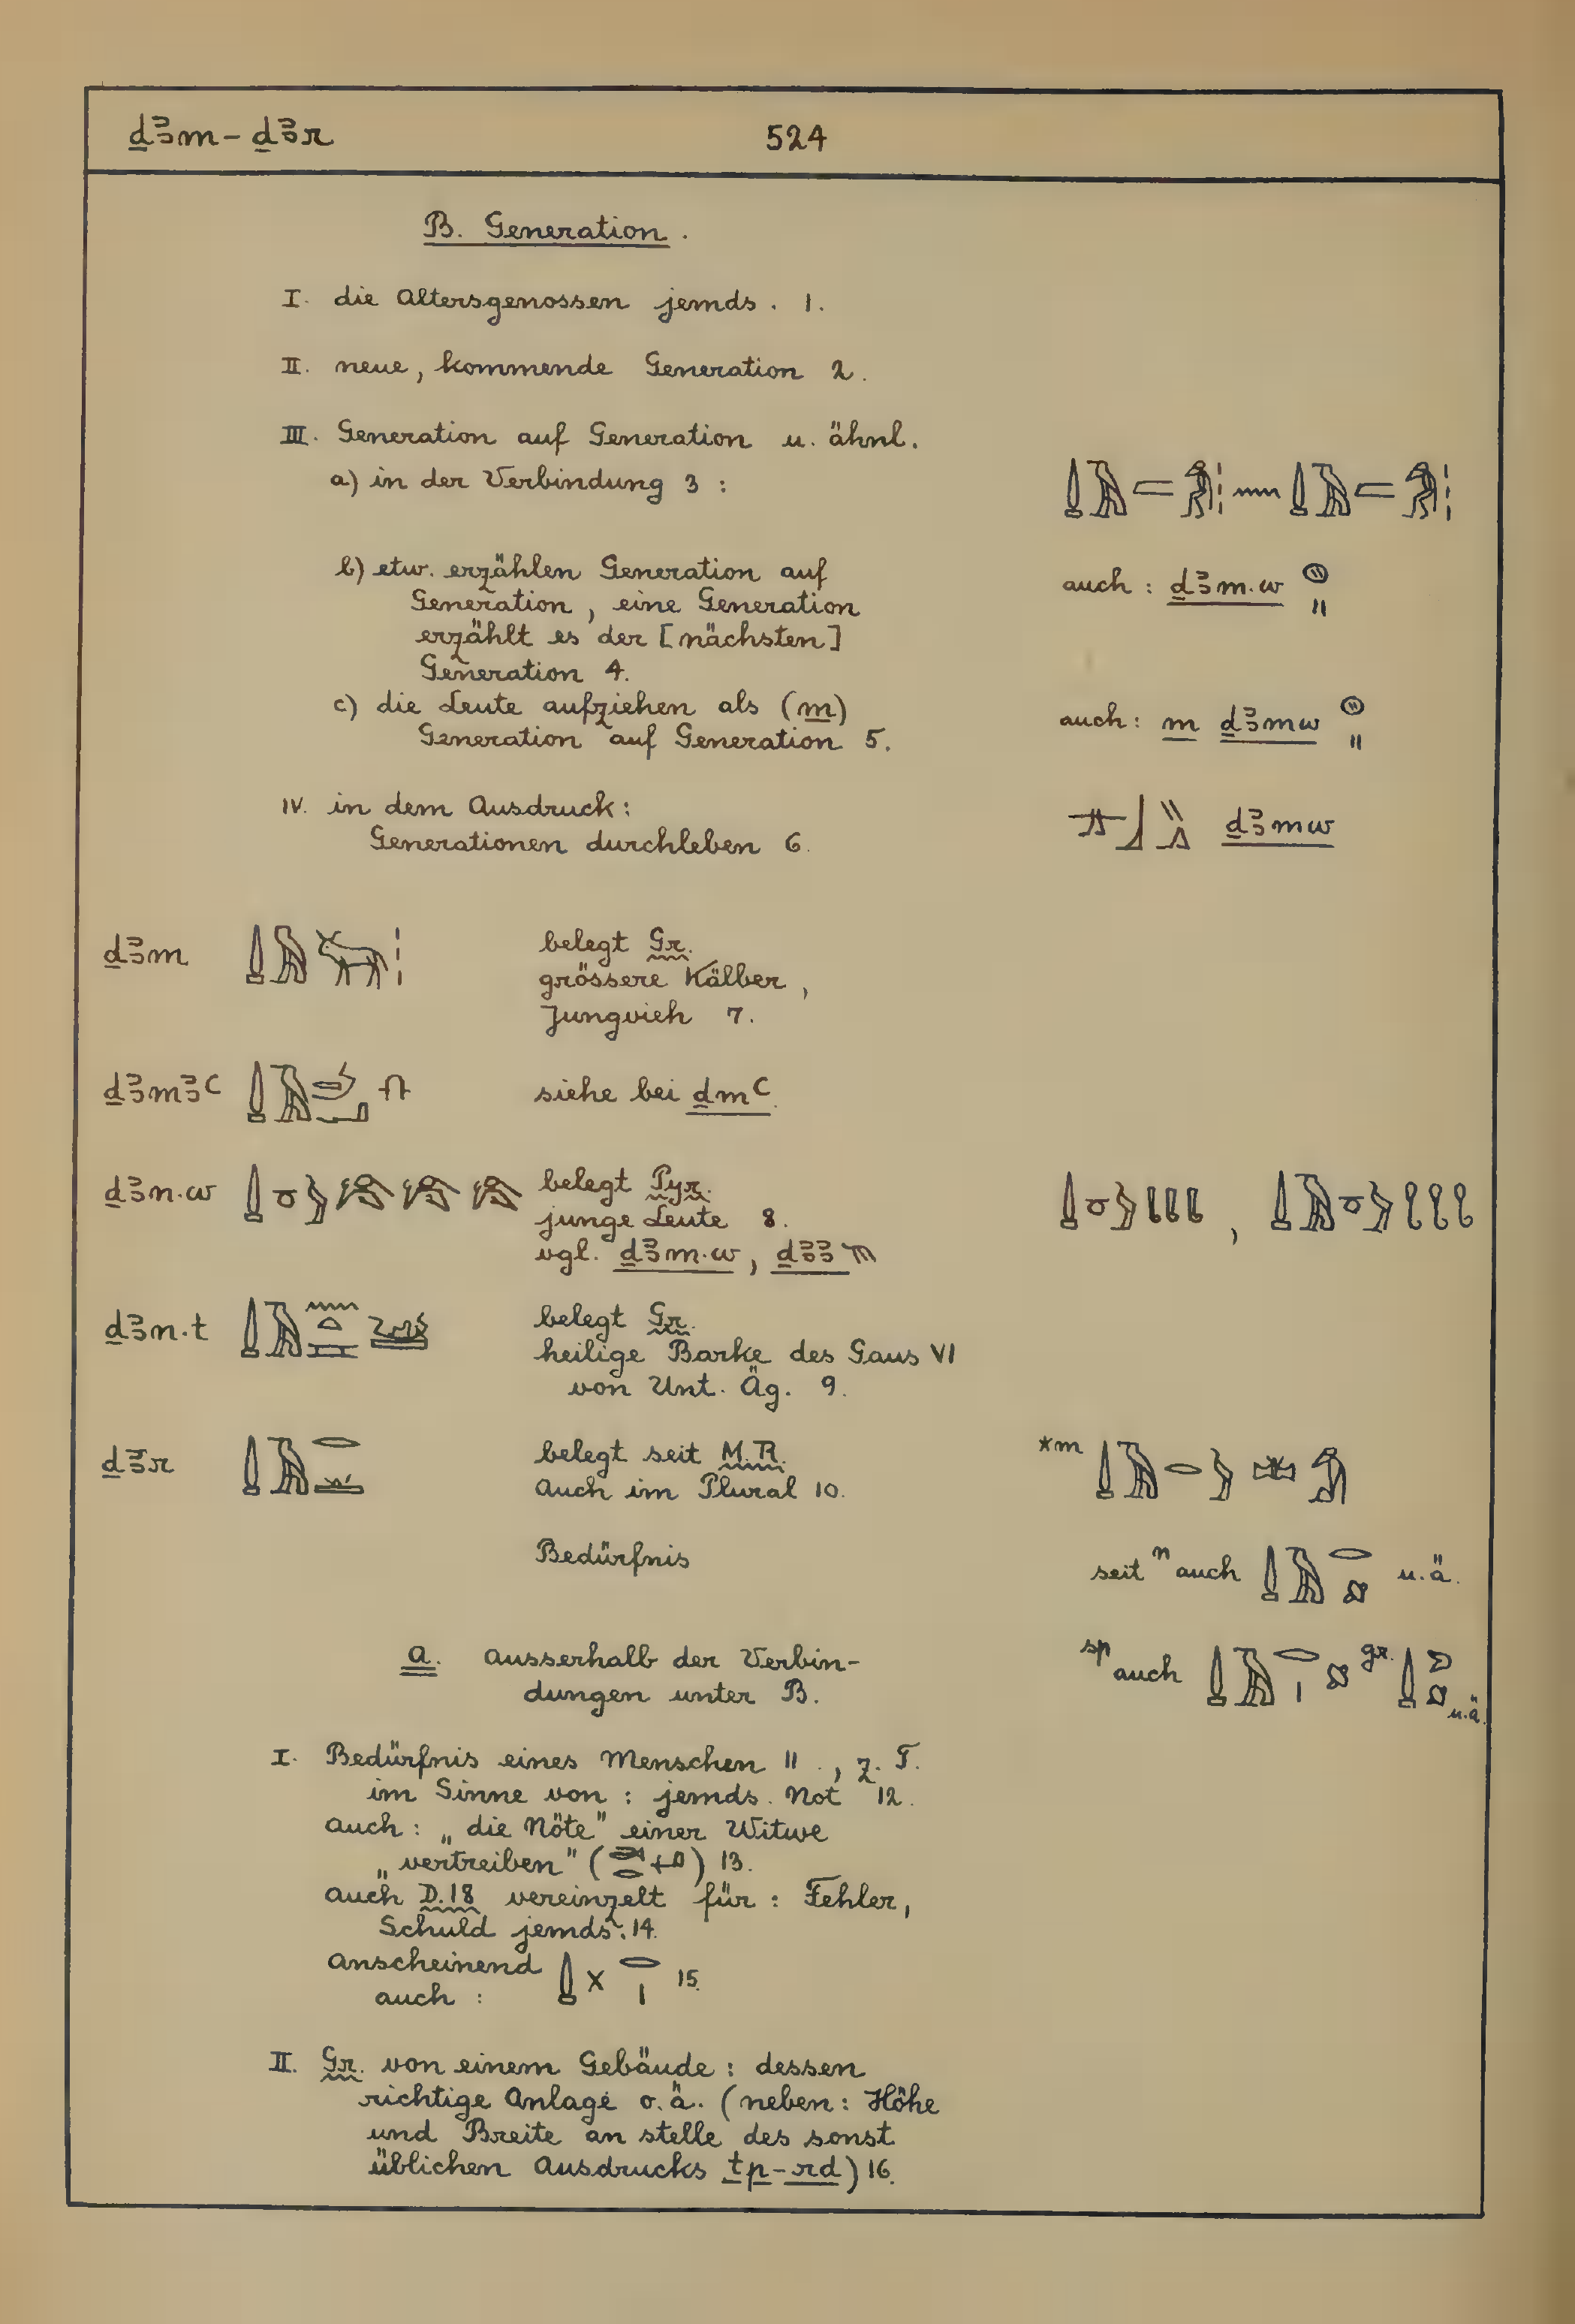 ḏꜣm – ḏꜣr 524
B. Generation.
I. die Altersgenossen jemds. 1.
II. neue, kommende Generation 2.
III. Generation auf Generation u. ähnl.
a) in der Verbindung 3 :
b) etw. erzählen Generation auf
Generation, eine Generation
erzählt es der [nächsten]
Generation 4.
auch : ḏꜣm.w
c) die Leute aufziehen als (m)
Generation auf Generation 5.
auch : m ḏꜣmw
IV. in dem Ausdruck :
Generationen durchleben 6.
ḏꜣmw
ḏꜣm belegt Gr.
grössere Kälber,
Jungvieh 7.
ḏꜣmꜣꜥ siehe bei ḏmꜥ.
ḏꜣn.w belegt Pyr.
junge Leute 8.
vgl. ḏꜣm.w, ḏꜣꜣ
ḏꜣn.t belegt Gr.
heilige Barke des Gaus VI
von Unt. Äg. 9.
ḏꜣr belegt seit M.R.
Auch im Plural 10.
*m
Bedürfnis
seit n auch u.ä.
a. ausserhalb der Verbin-
dungen unter B.
sp auch gr. u.ä.
I. Bedürfnis eines Menschen 11., z. T.
im Sinne von : jemds. Not 12.
auch : „die Nöte" einer Witwe
„vertreiben" ( ) 13.
auch D.18 vereinzelt für : Fehler,
Schuld jemds. 14.
anscheinend 15.
auch :
II. Gr. von einem Gebäude : dessen
richtige Anlage o.ä. (neben : Höhe
und Breite an stelle des sonst
üblichen Ausdrucks tp-rd) 16.